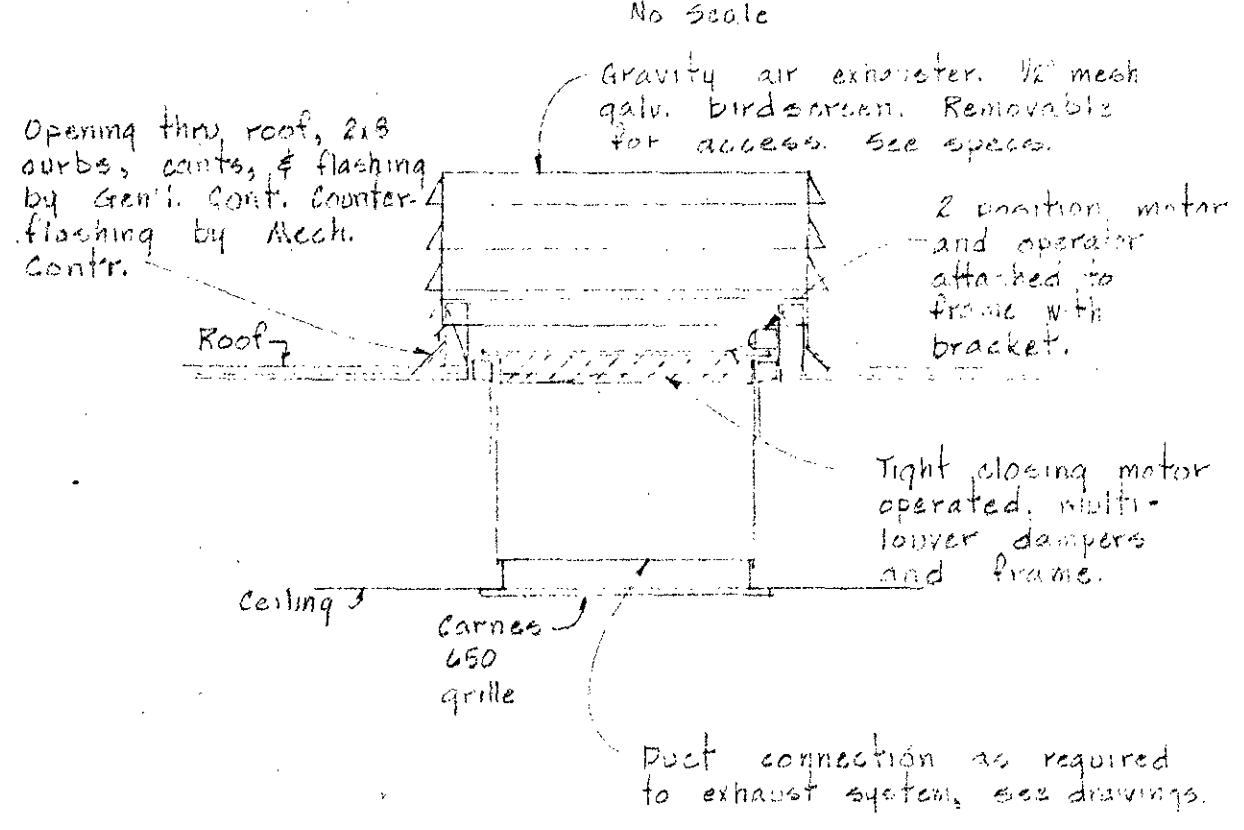 No Scale
Gravity air exhauster. 1/2" mesh
galv. birdscreen. Removable
for access. See specs.
Opening thru roof, 2x8
curbs, cants, & flashing
by Gen'l. Cont. Counter-
flashing by Mech.
Cont'r.
2 position motor
and operator
attached to
frame with
bracket.
Roof
Tight closing motor
operated, multi-
louver dampers
and frame.
Ceiling
Carnes
650
grille
Duct connection as required
to exhaust system, see drawings.